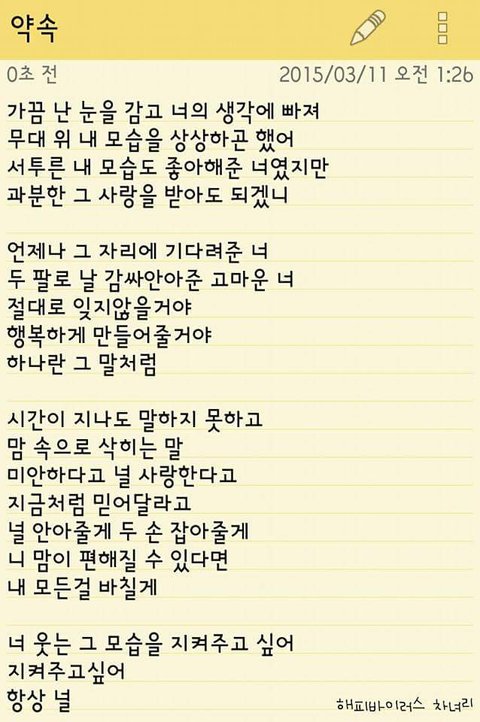 약속
0초 전 2015/03/11 오전 1:26
가끔 난 눈을 감고 너의 생각에 빠져
무대 위 내 모습을 상상하곤 했어
서투른 내 모습도 좋아해준 너였지만
과분한 그 사랑을 받아도 되겠니
언제나 그 자리에 기다려준 너
두 팔로 날 감싸안아준 고마운 너
절대로 잊지않을거야
행복하게 만들어줄거야
하나란 그 말처럼
시간이 지나도 말하지 못하고
맘 속으로 삭히는 말
미안하다고 널 사랑한다고
지금처럼 믿어달라고
널 안아줄게 두 손 잡아줄게
니 맘이 편해질 수 있다면
내 모든걸 바칠게
너 웃는 그 모습을 지켜주고 싶어
지켜주고싶어
항상 널
해피바이러스 차녀리